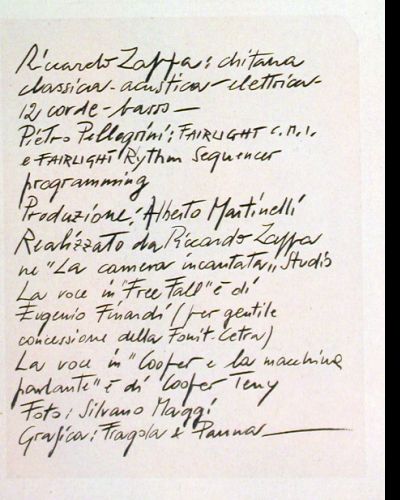 Riccardo Zappa: chitarra
classica - acustica - elettrica -
12 corde - basso —
Pietro Pellegrini: FAIRLIGHT C.M.I.
e FAIRLIGHT Rythm Sequencer
programming
Produzione: Alberto Martinelli
Realizzato da Riccardo Zappa
ne "La camera incantata" Studio
La voce in "Free Fall" è di
Eugenio Finardi (per gentile
concessione della Fonit. Cetra)
La voce in "Cooper e la macchina
parlante" è di Cooper Terry
Foto: Silvano Maggi
Grafica: Fragola & Panna —